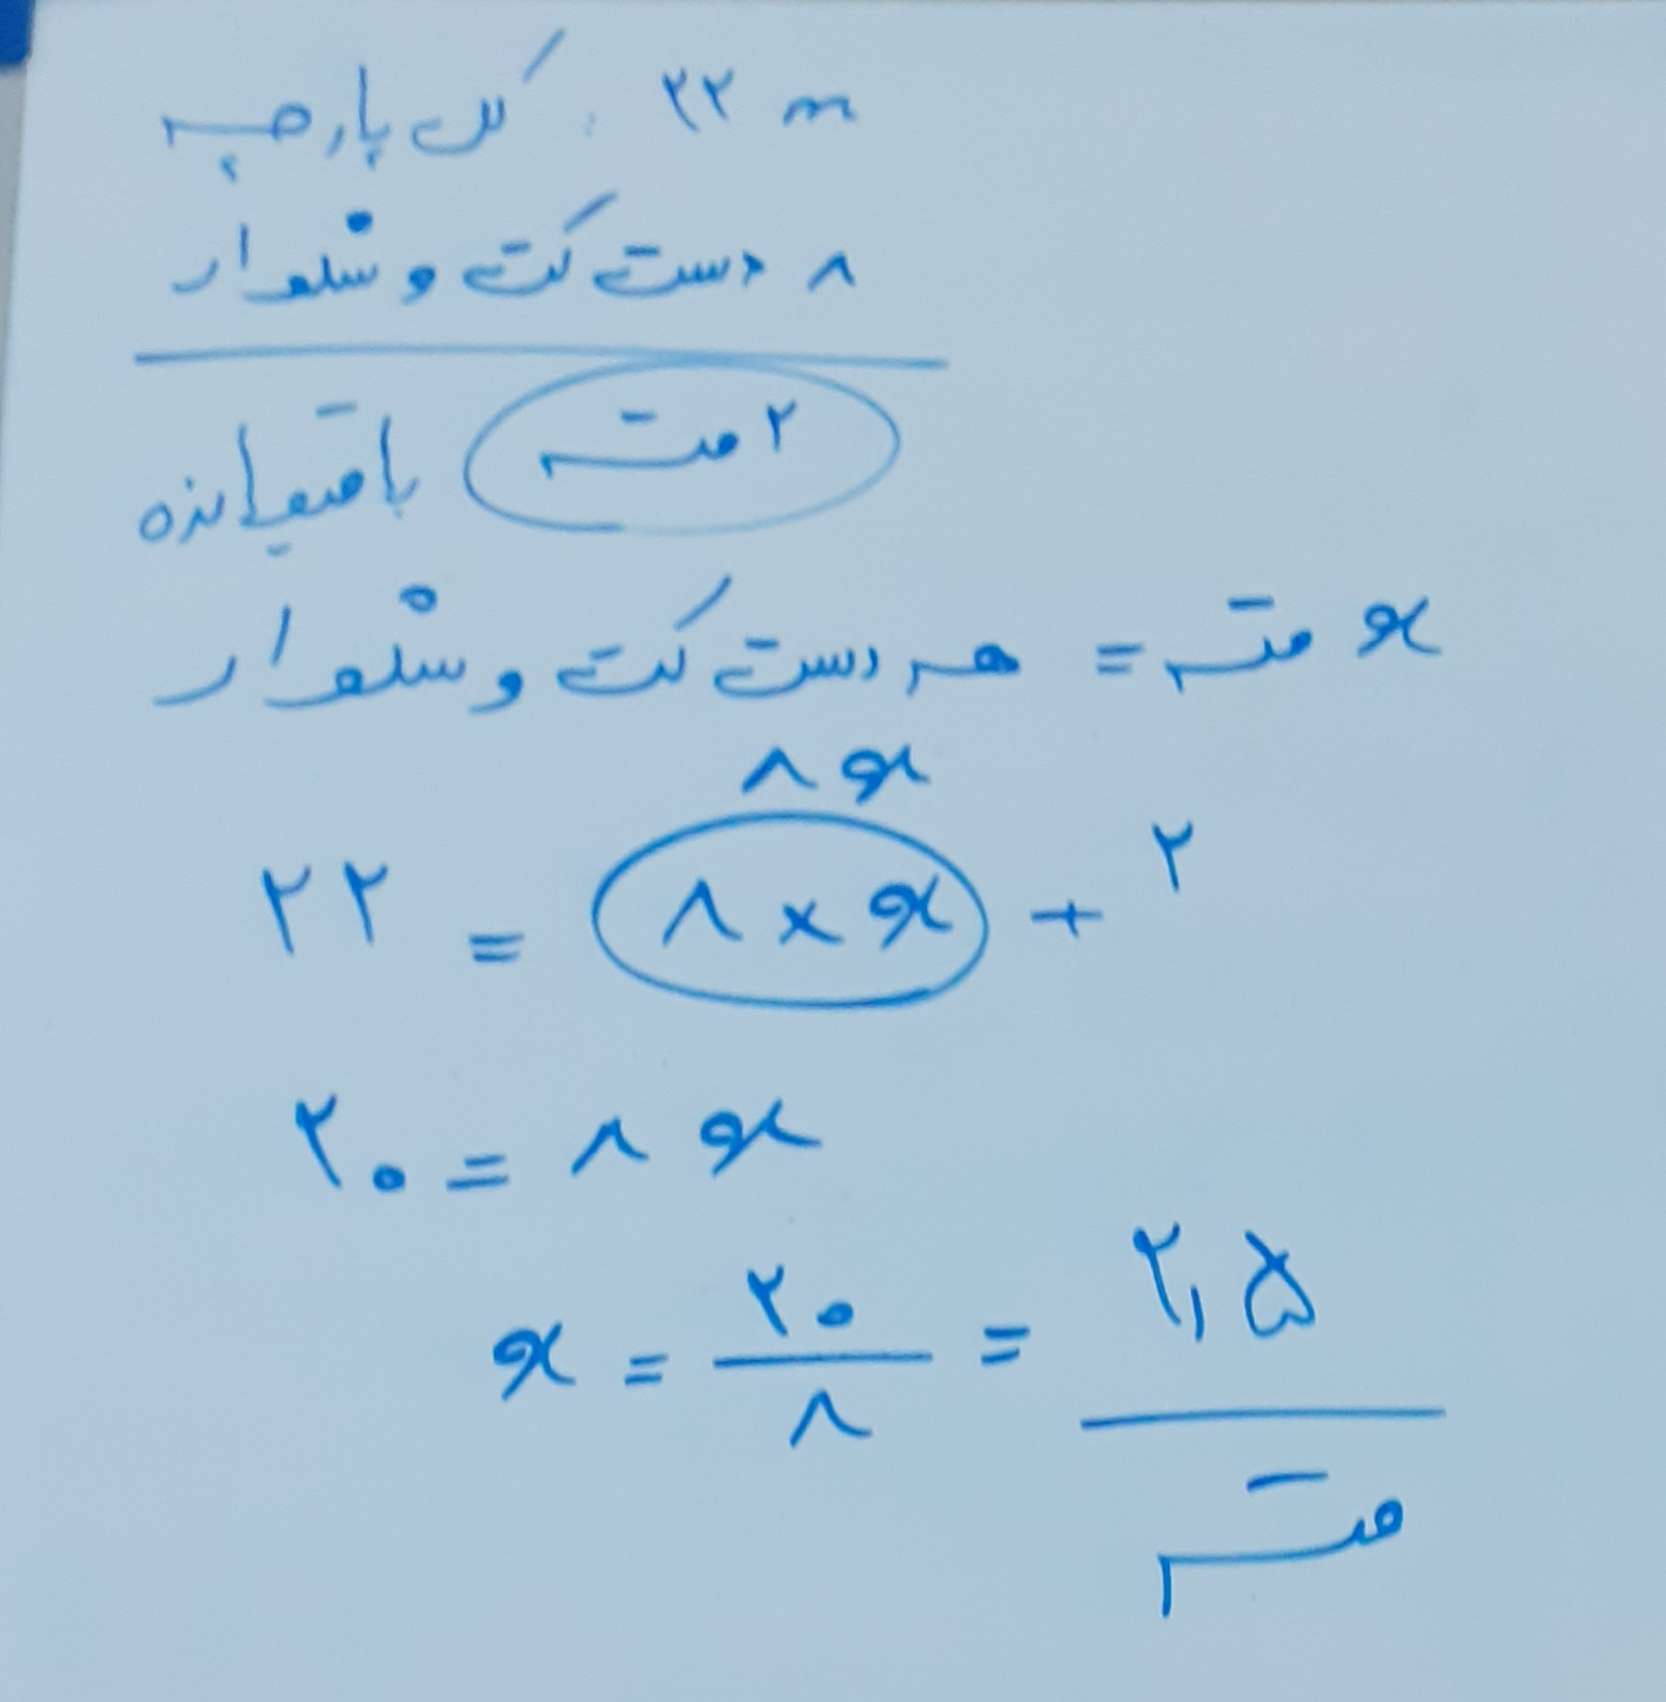 کل پارچه : ۲۲ m
۸ دست کت و شلوار
۲ متر باقیمانده
x متر = هر دست کت و شلوار
۸x
۲۲ = ۸ × x + ۲
۲۰ = ۸x
x = ۲۰/۸ = ۲,۵
متر